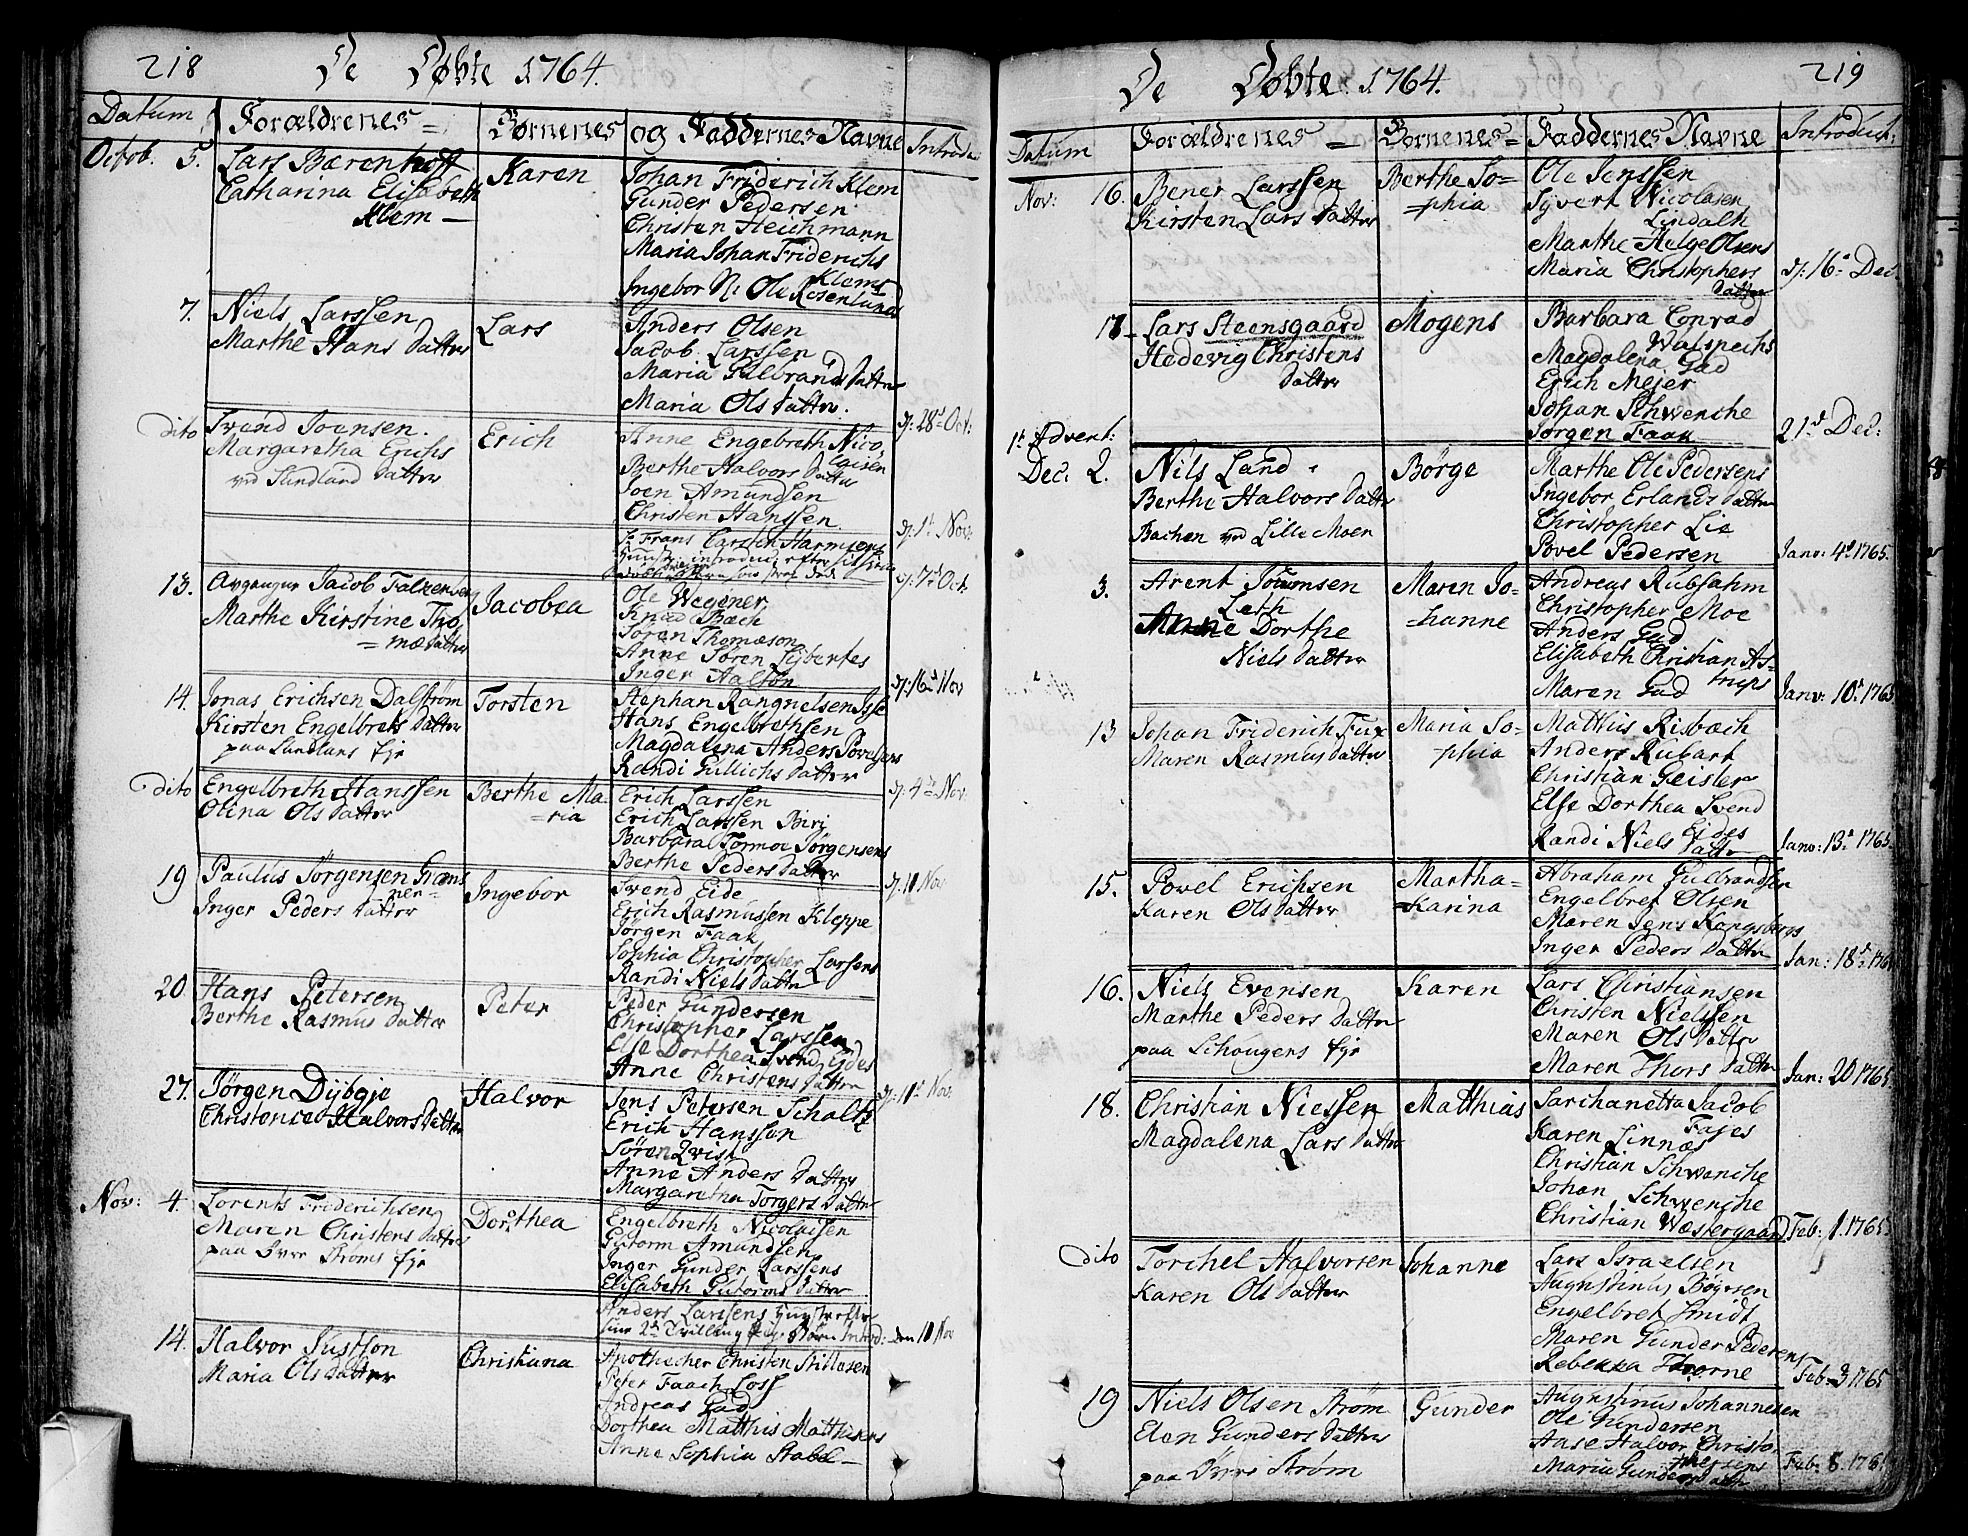 218
De Døbte 1764.
Datum
Forældrenes
Børnenes
og Faddernes Navne
Introd
Octob. 5.
Lars Bærenhoff
Catharina Elisabeth
Klem
Karen
Johan Friderich Klem
Gunder Pedersen
Christen Heichmann
Maria Johan Friderichs
Klems
Ingebor N. Ole Rosenlunds
7.
Niels Larssen
Marthe Hans datter
Lars
Anders Olsen
Jacob Larssen
Maria Gulbrands datter
Maria Ols datter.
dito
Svend Joensen.
Margaretha Erichs
ved Sundland datter
Erich
d: 28d Oct:
Anne Engebreth Nico-
laisen
Berthe Halvors datter
Joen Amundsen
Christen Hanssen.
d: 1t Nov.
Sr Frans Carsten Harmsens
Hustr: introduc: efter sit
d: 7d Oct:
13.
Avgangne Jacob Falkensen
Marthe Kirstine Tho-
=mæ datter
Jacobea
Ole Wegener
Knud Bæch
Søren Thomæson
Anne Søren Sijbertes
Inger Aalton
d: 16d Nov
14.
Jonas Erichsen Dalstrøm
Kirsten Engelbrets datter
paa Sundlans Eje
Torsten
Stephan Rangnelsen
Hans Engelbrethsen
Magdalena Anders Povelsens
Randi Gullichs datter
dito
Engelbreth Hanssen
Olina Ols datter
Berthe Ma-
=ria
d: 4de Nov.
Erich Larssen
Erich Larssen Birj
Barbara Tormoe Jørgensens
Berthe Peders datter
19
Paulus Jørgensen Græns
ner
Inger Peders datter
Ingebor
d: 11 Nov
Svend Eide
Erich Rasmussen Kleppe
Jørgen Faak
Sophia Christopher Larsens
Randi Niels datter
20
Hans Petersen
Berthe Rasmus datter
Peter
Peder Gundersen
Christopher Larssen
Else Dorthea Svend Eides
Anne Christens datter
27.
Jørgen Dijbgje
Christence Halvors datter
Halvor
d: 11t Nov.
Jens Petersen Schaltz
Erich Hanssen
Søren Qvist
Anne Anders datter
Margaretha Torgers datter
Nov: 4.
Lorents Friderichsen
Maren Christens datter
paa Øvre Strøms Eje
Dorthea
Engelbreth Nicolaisen
Gutorm Amundsen
Inger Gunder Larssens
Elisabeth Gutorms datter
Anders Larssens Hustr efter
sine 2de Tvilling Pige Børn Introd: den 11 Nov
14.
Halvor Justson
Maria Ols datter
Christiana
Apothecher Christen Stillesen
Peter Faach Loss
Andreas Gad
Dorthea Matthis Matthisens
Anne Sophia Stabel
219
De Døbte 1764.
Datum
Forældrenes
Børnenes
Faddernes Navne
Introduct:
Nov: 16.
Bener Larssen
Kirsten Lars datter
Berthe So=
=phia
Ole Jenssen
Sijvert Nicolasen
Lindalh
Marthe Helge Olsens
Maria Christophers
datter
d: 16d Dec
17
Lars Steensgaard
Hedevig Christens
datter
Mogens
Barbara Conrad
Walspechs
Magdalena Gad
Erich Mejer
Johan Schwenche
Jørgen Faak
21d Dec:
1t Advent:
Dec: 2.
Nils Land
Berthe Halvors datter
Bachen ved Lille Moen
Børge
Marthe Ole Pedersens
Ingebor Erlands datter
Christopher Lie
Povel Pedersen
Janv: 4d 1765.
3.
Arent Jørnsen
Leth
Anne Dorthe
Niels datter
Maren Jo-
=hanne
Andreas Rubsahm
Christopher Moe
Anders Gad
Elisabeth Christian As-
trups
Maren Gad
Janv: 10d 1765
13
Johan Friderich Fux
Maren Rasmus datter
Maria So-
phia
Mathis Risbæch
Anders Rubart
Christian Geisler
Else Dorthea Svend
Eides
Randi Niels datter
Janv: 13d 1765.
15.
Povel Erichsen
Karen Ols datter
Martha=
=Karina
Abraham Gulbrandsen
Engelbret Olsen
Maren Jens Kongsbergs
Inger Peders datter
Jan: 18d 176
16.
Niels Evensen
Marthe Peders datter
paa Schougens Eje
Karen
Lars Christiansen
Christen Nielssen
Maren Ols datter
Maren Thors datter
Jan: 20 1765.
18.
Christian Niessen
Magdalena Lars datter
Matthias
Sarchanetta Jacob
Fajes
Karen Linnæs
Christian Schwenche
Johan Schwenche
Christian Wæstergaard
Feb: 1. 1765.
dito
Torchel Halvorsen
Karen Ols datter
Johanne
Lars Israelsen
Augustinus Børresen
Engelbret Smidt
Maren Gunder Pedersens
Rebekka Thorne
Feb: 3 1765
19
Niels Olsen Strøm
Elen Gunders datter
paa Øvre Strøm
Gunder
Augustinus Johannesen
Ole Gundersen
Aase Halvor Christo-
phersens
Maria Gunders datter
Feb: 8. 176